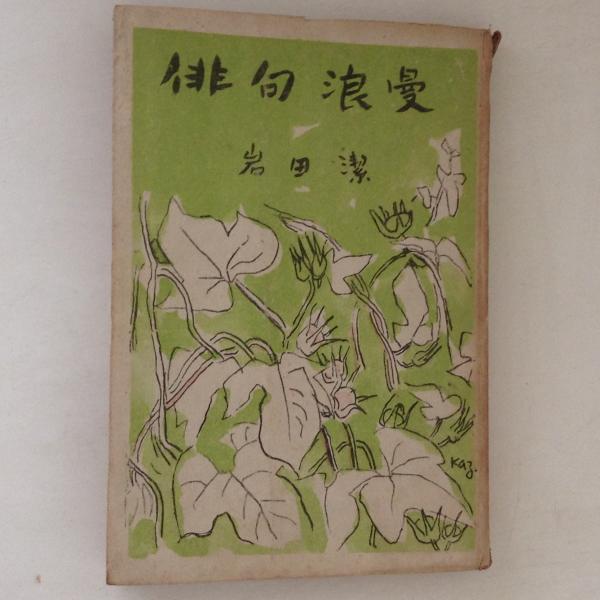 俳句浪曼
岩田潔
Kaz.